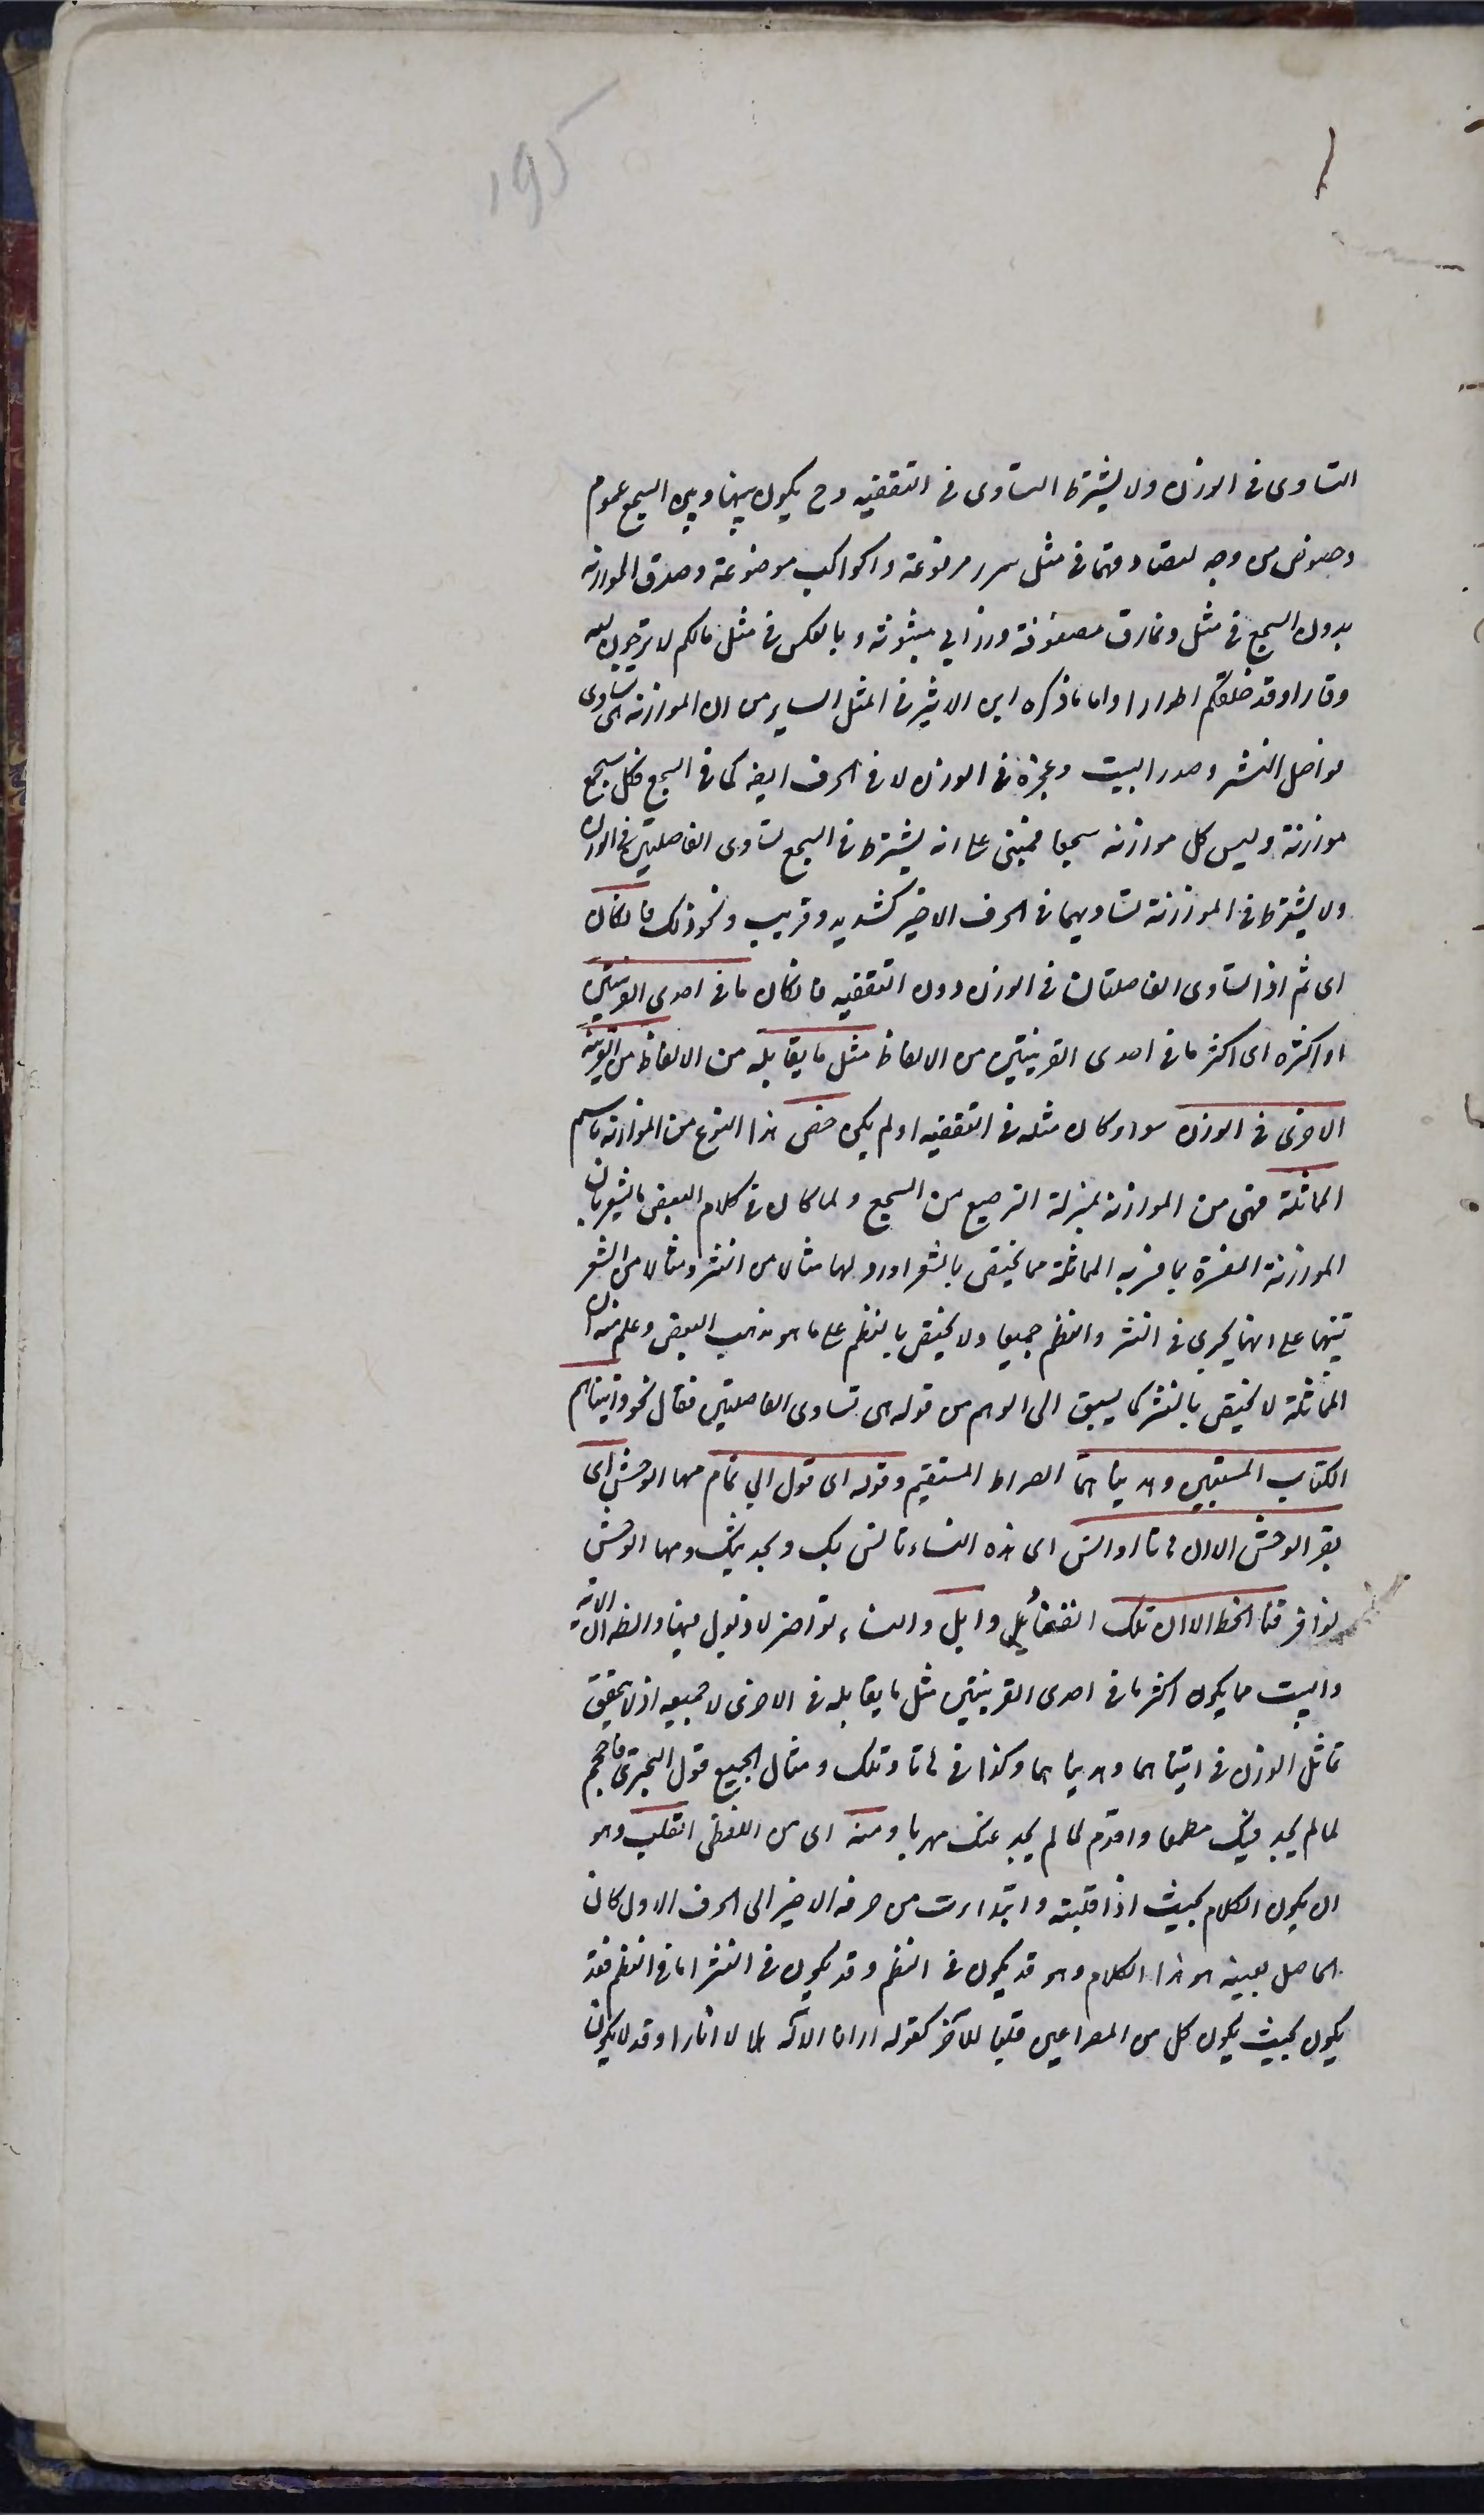 ١٩٥
التساوى فى الوزن ولا يشترط التساوى فى التقفيه وح يكون بينها وبين السجع عموم
وخصوص من وجه لتصادقهما فى مثل سرر مرفوعة واكواب موضوعة وصدق الموازنه
بدون السجع فى مثل ونمارق مصفوفة وزرابي مبثوثة وبالعكس فى مثل مالكم لا ترجون لله
وقارا وقد خلقكم اطوارا واما ما ذكره ابن الاثير فى المثل الساير من ان الموازنة هى تساوى
فواصل النثر وصدر البيت وعجزه فى الوزن لا فى الحرف ايضا كما فى السجع فكل سجع
موازنة وليس كل موازنه سجعا فمبنى على انه يشترط فى السجع تساوى الفاصلتين فى الوزن
ولا يشترط فى الموازنة تساويهما فى الحرف الاخير كشديد وقريب ونحو ذلك فان كان
اى ثم اذا تساوى الفاصلتان فى الوزن دون التقفيه فان كان ما فى احدى القرينتين
او اكثره اى اكثر ما فى احدى القرينتين من الالفاظ مثل ما يقابله من الالفاظ من القرينة
الاخرى فى الوزن سواء كان مثله فى التقفيه او لم يكن خص هذا النوع من الموازنه باسم
المماثلة فهى من الموازنة بمنزلة الترصيع من السجع ولما كان فى كلام البعض ما يشعر بان
الموازنة المفسرة بما فسر به المماثلة مما يختص بالشعر اورد لها مثالا من النثر ومثالا من الشعر
تنبيها على انها يجرى فى النثر والنظم جميعا ولا يختص بالنظم على ما هو مذهب البعض وعلم منه ان
المماثلة لا يختص بالنثر كما يسبق الى الوهم من قوله هى تساوى الفاصلتين فقال نحو واتيناهما
الكتاب المستبين وهديناهما الصراط المستقيم وقوله اى قول ابي تمام مها الوحش اى
بقر الوحش الا ان هاتا اوانس اى هذه النساء تانس بك ويحدثنك ومها الوحش
نوافر قنا الخط الا ان تلك القنا ذوابل والنساء نواضر لا ذبول فيها والظ ان الاية
والبيت مما يكون اكثر ما فى احدى القرينتين مثل ما يقابله فى الاخرى لا جميعه اذ لا يتحقق
تماثل الوزن فى اتيناهما وهديناهما وكذا فى هاتا وتلك ومثال الجميع قول البحترى فاحجم
لما لم يجد فيك مطمعا واقدم لما لم يجد عنك مهربا ومنه اى من اللفظى القلب وهو
ان يكون الكلام بحيث اذا قلبته وابتداءت من حرفه الاخير الى الحرف الاول كان
الحاصل بعينه هو هذا الكلام وهو قد يكون فى النظم وقد يكون فى النثر اما فى النظم فقد
يكون بحيث يكون كل من المصراعين قلبا للآخر كقوله ارانا الاله هلالا انارا وقد لا يكون